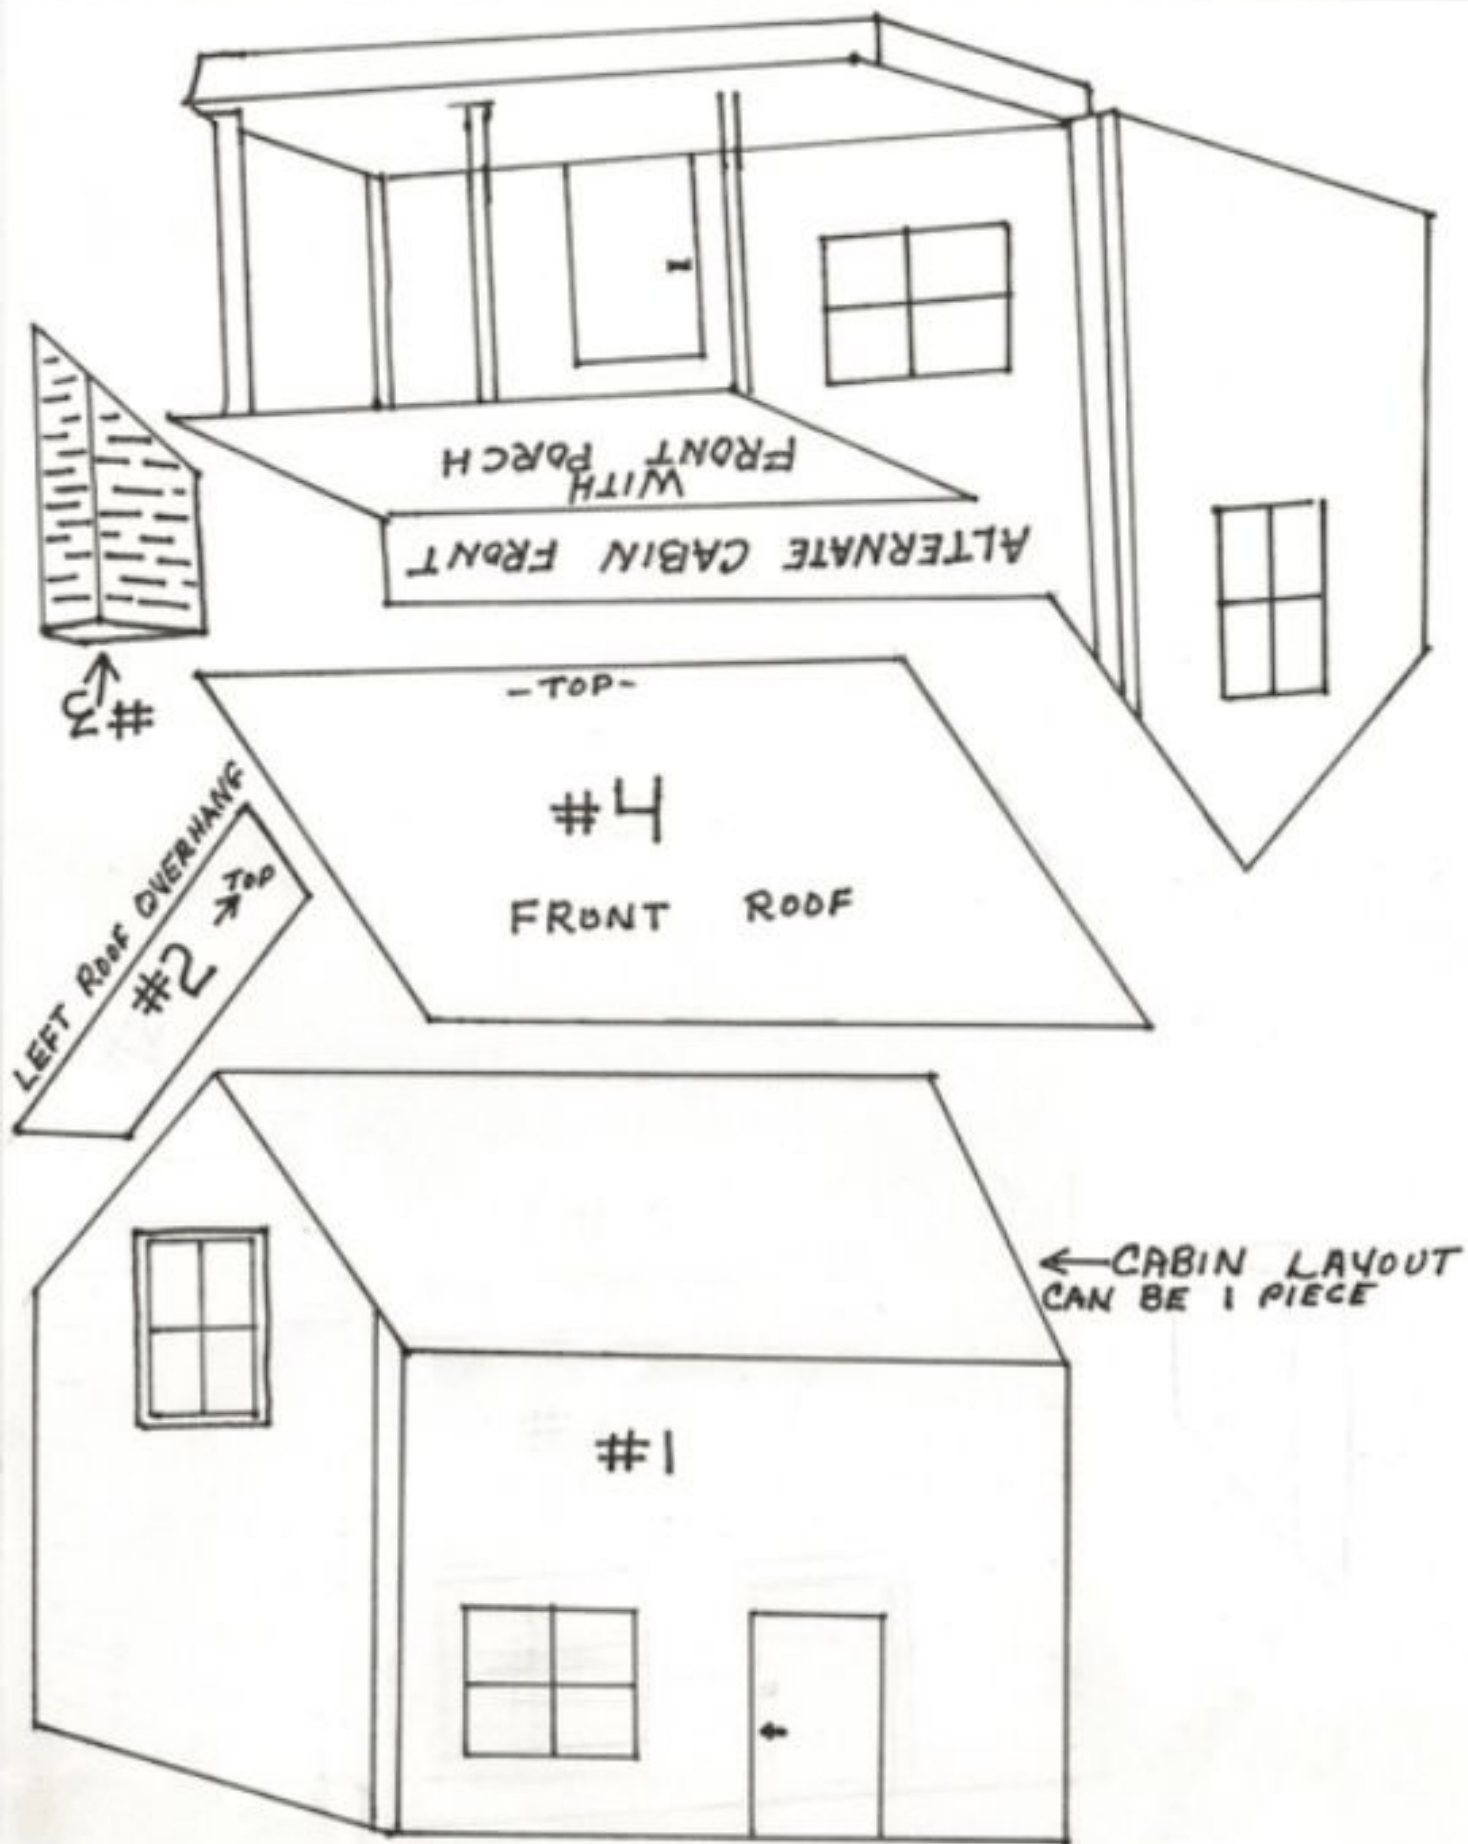 ALTERNATE CABIN FRONT
WITH
FRONT PORCH
#3
-TOP-
#4
FRONT ROOF
LEFT ROOF OVERHANG
TOP
#2
CABIN LAYOUT
CAN BE 1 PIECE
#1